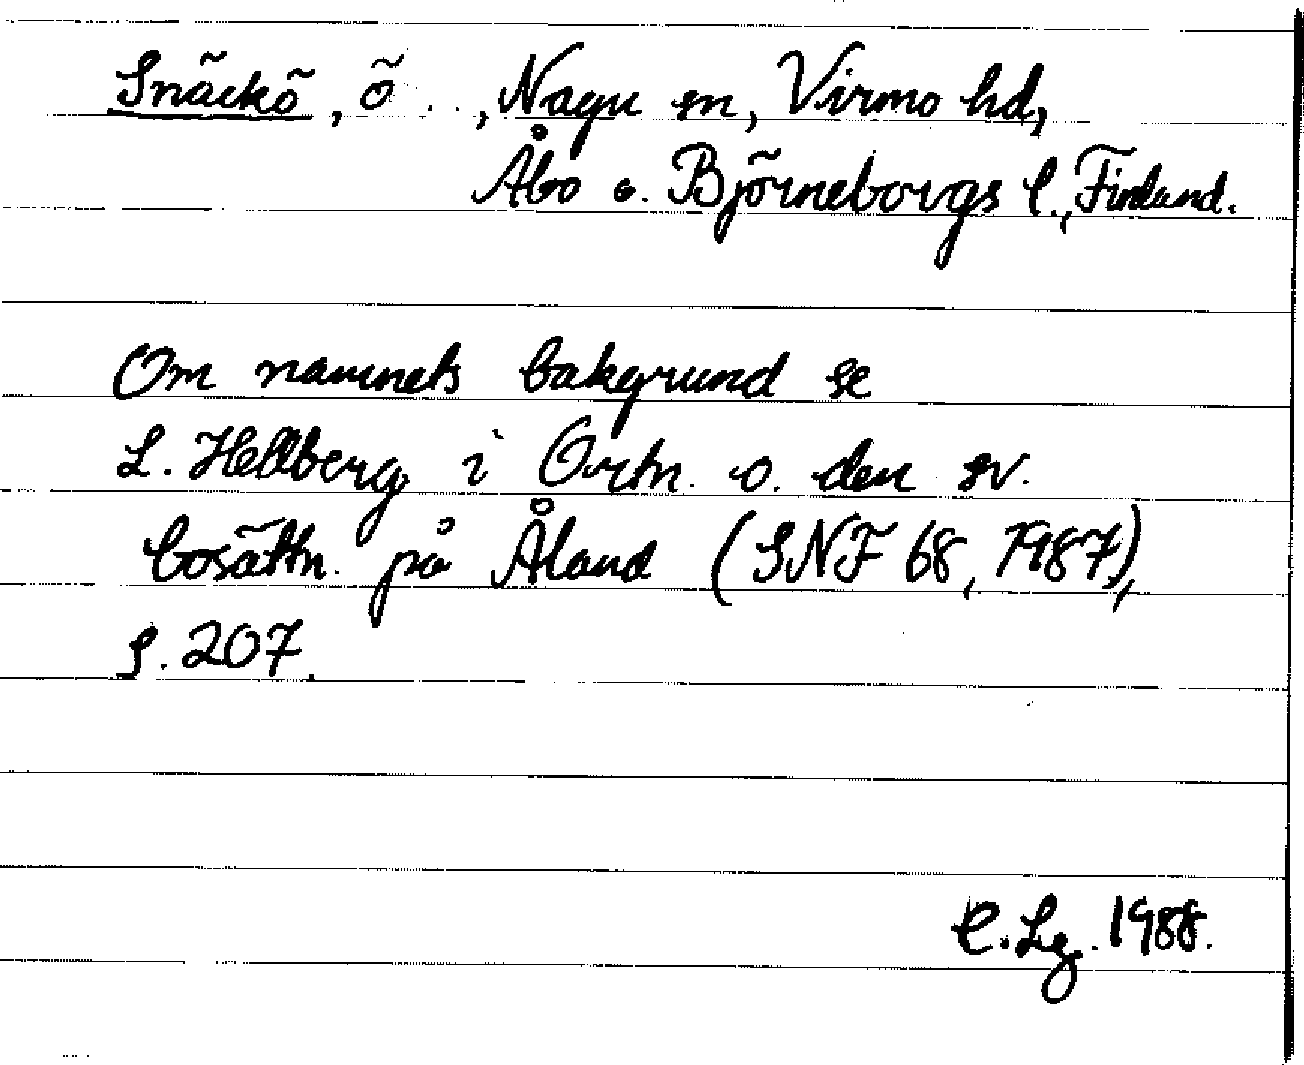 Snäckö, ö . . , Nagu sn, Virmo hd,
Åbo o. Björneborgs l., Finland.
Om namnets bakgrund se
L. Hellberg i Ortn. o. den sv.
bosättn. på Åland (SNF 68, 1987),
s. 207.
C. Lg. 1988.